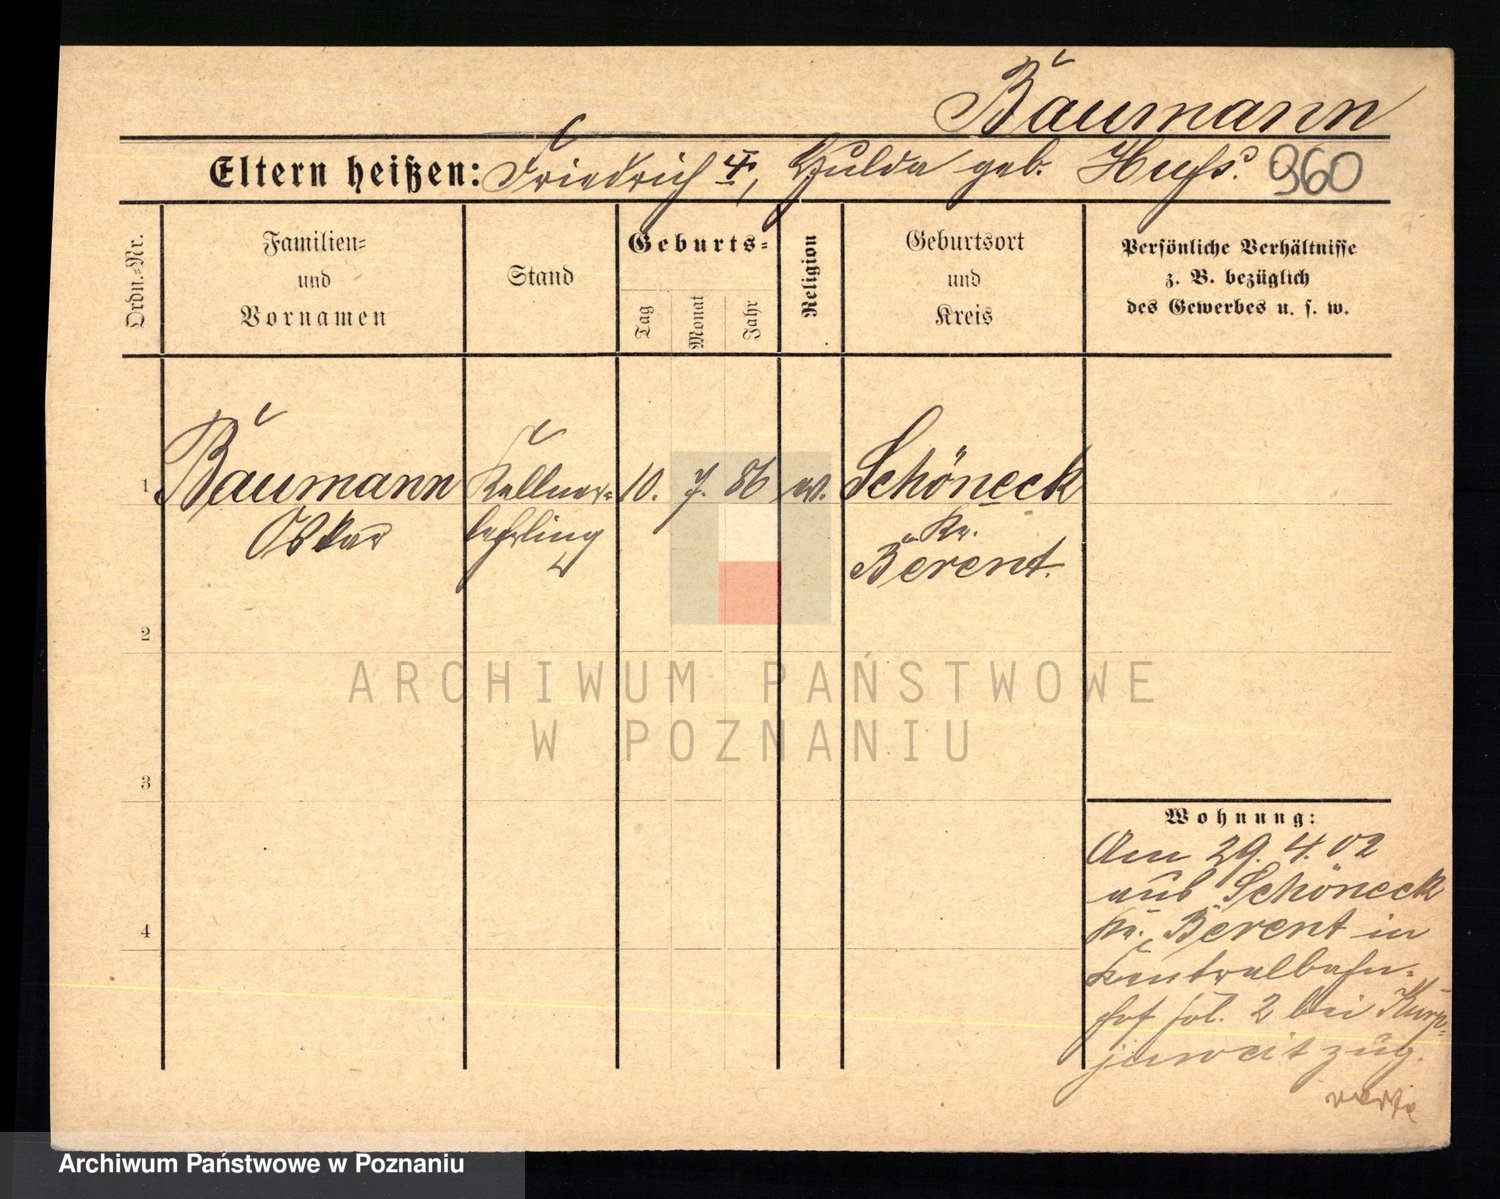 Baumann
Eltern heißen: Friedrich †, Hulda geb. Huss. 960
Ordn.=Nr.
Familien=
und
Vornamen
Stand
Geburts=
Tag
Monat
Jahr
Religion
Geburtsort
und
Kreis
Persönliche Verhältnisse
z. B. bezüglich
des Gewerbes u. s. w.
1
Baumann
Oskar
Kellner=
lehrling
10. 7. 86
ev.
Schöneck
Kr.
Berent.
2
3
4
Wohnung:
Am 29. 4. 02
aus Schöneck
Kr. Berent in
Centralbahn=
hof fol. 2 bei
zug.
ARCHIWUM PAŃSTWOWE
W POZNANIU
Archiwum Państwowe w Poznaniu